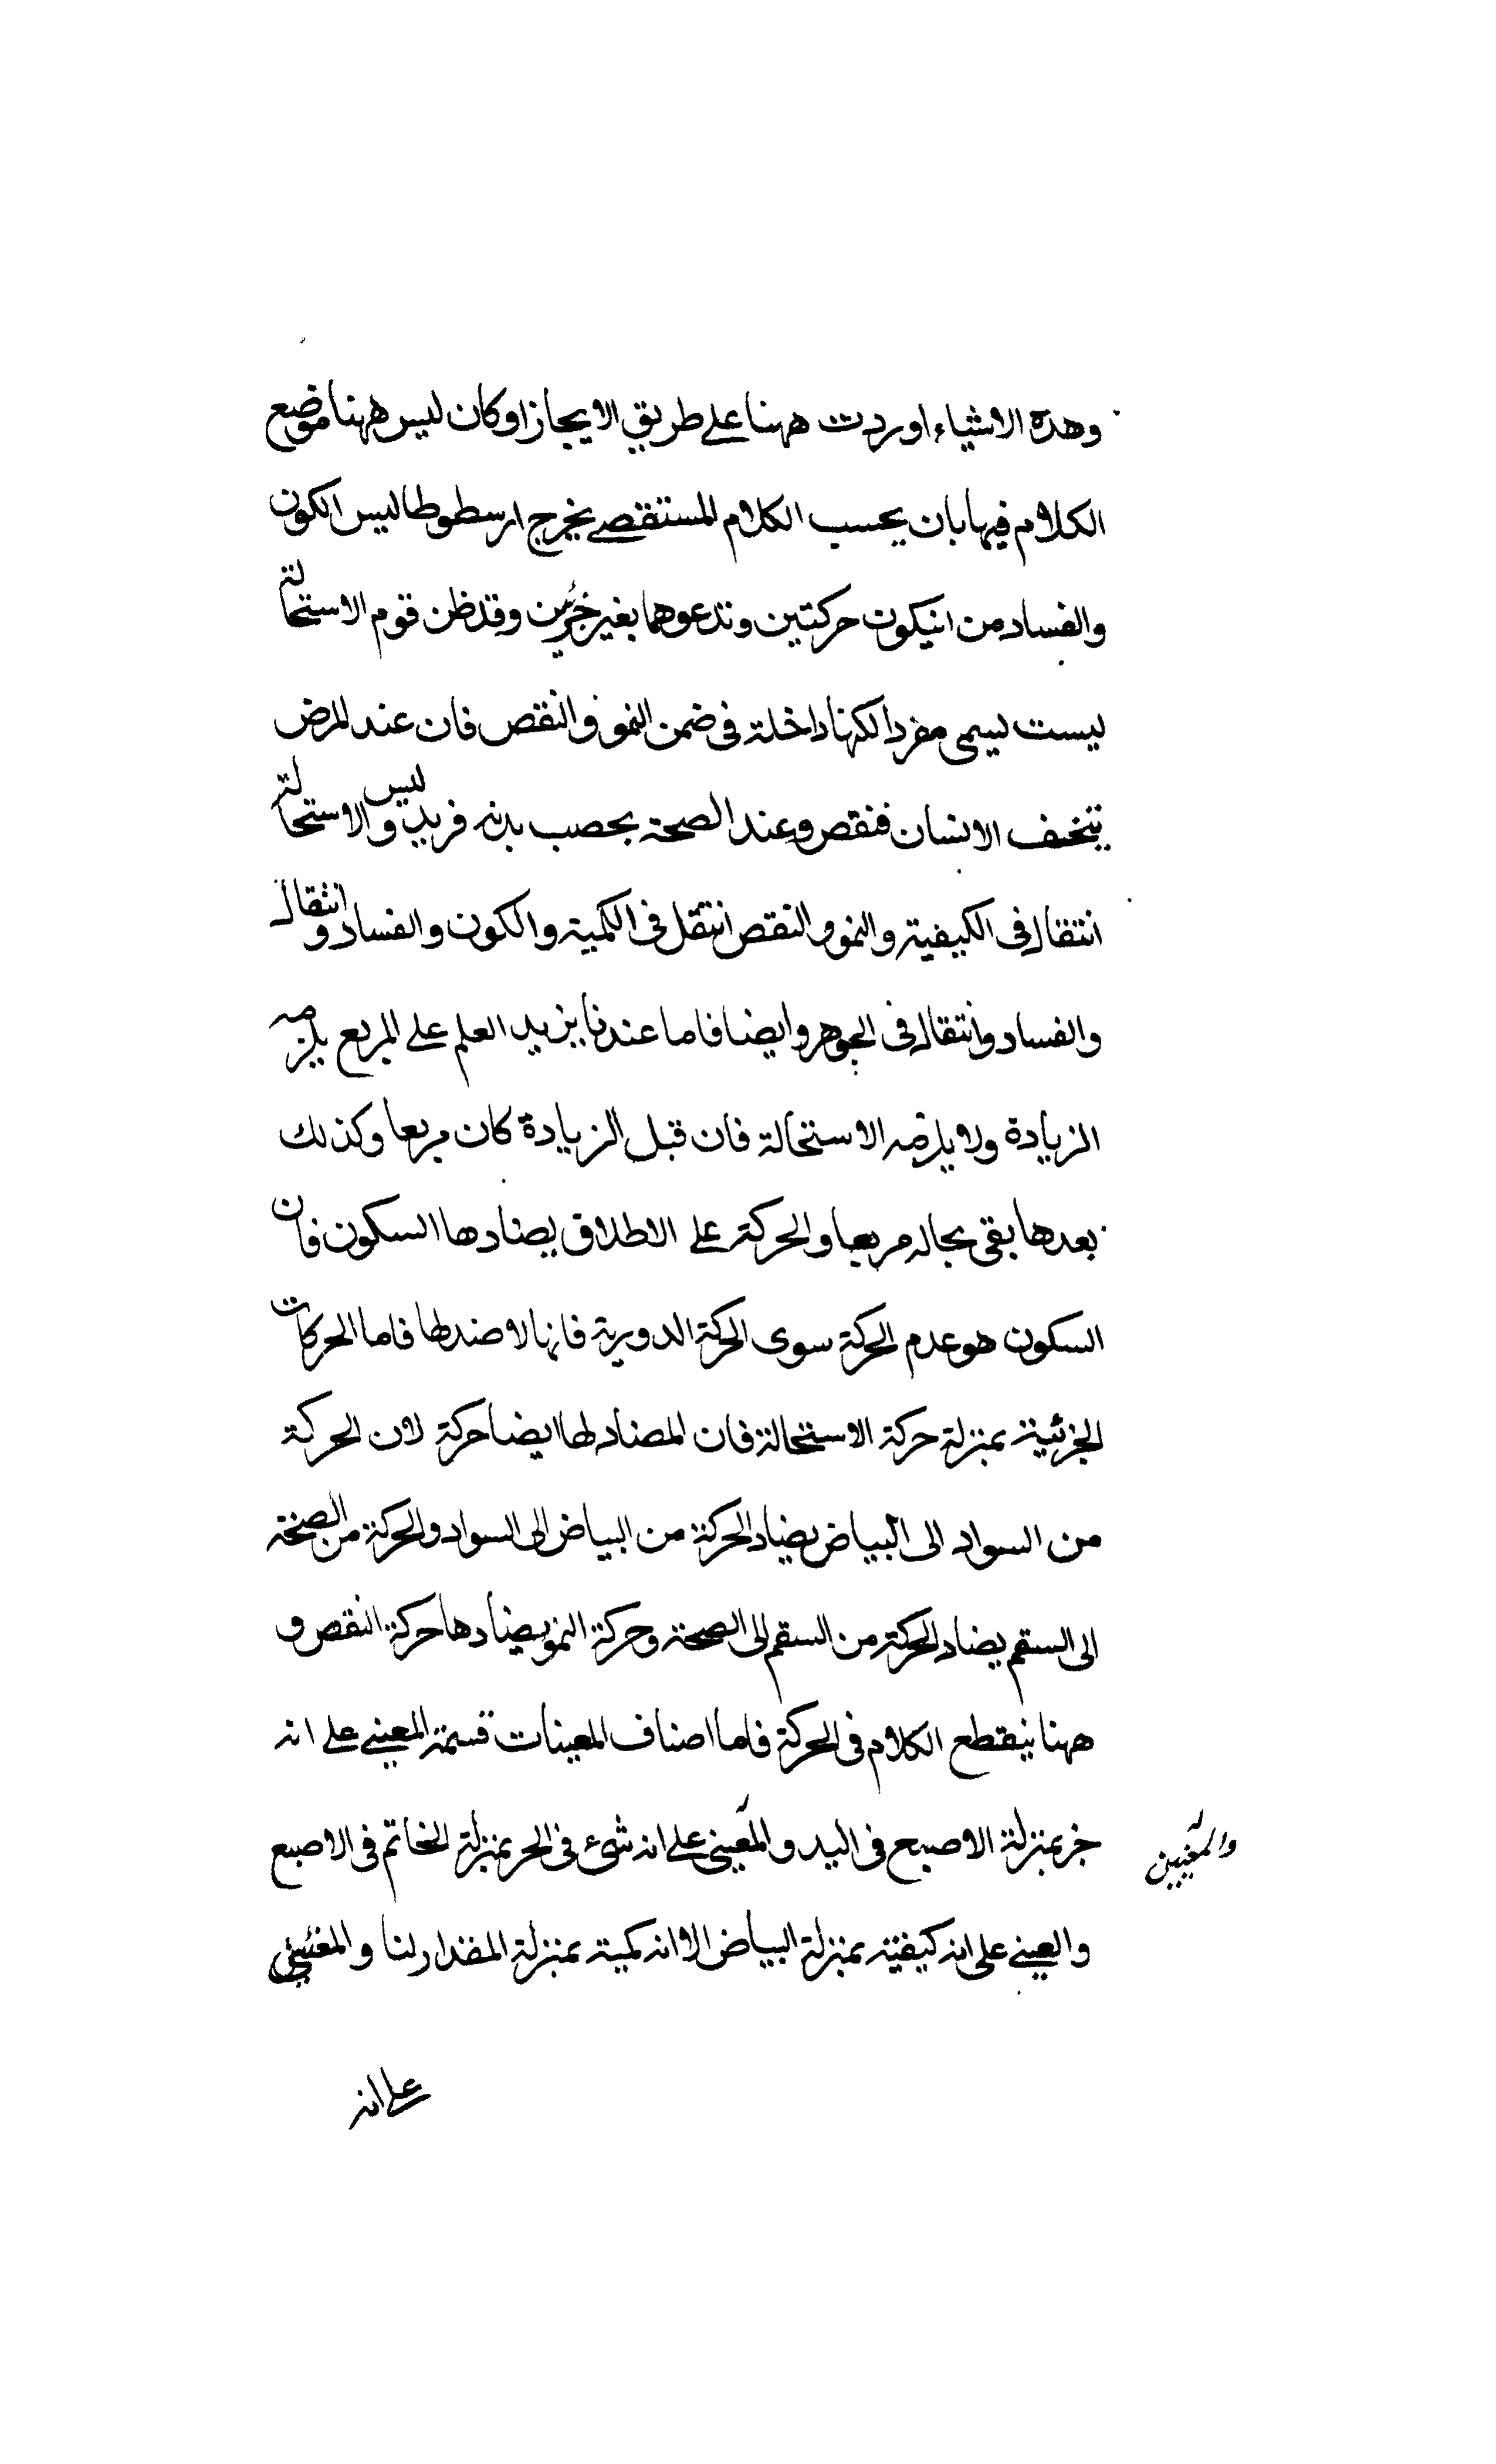 وهذه الاشياء اوردت ههنا على طريق الايجاز اوكان ليس ههنا موضع
الكلام فيها بان بحسب الكلام المستقصى يخرج ارسطوطاليس الكون
والفساد من انيكون حركتين وتدعوهما بغير خرئين وقد ظن قوم الاستحالة
ليست ليسمى مفردا لكنها داخلة فى ضمن النمو والنقص فان عند المرض
يتخف الانسان فنقص وعند الصحة بحصب بدنه فريد وليس الاستحالة
انتقال فى الكيفية والنمو والنقص انتقل فى الكمية والكون والفساد وانتقال
والفساد وانتقال فى الجوهر وايضا فاما عندنا يزيد العلم على المربع يلزمه
الزيادة ولا يلزمه الاستحالة فان قبل الزيادة كان مربعا وكذلك
بعدها بقى بحاله مربعا والحركة على الاطلاق يضادها السكون فان
السكون هو عدم الحركة سوى الحركة الدورية فانها لا ضد لها فاما الحركات
الجزئية بمنزلة حركة الاستحالة فان المضاد لها ايضا حركة لان الحركة
من السواد الى البياض يضاد الحركة من البياض الى السواد والحركة من الصحة
الى السقم يضاد الحركة من السقم الى الصحة وحركة النمو يضادها حركة النقص و
ههنا ينقطع الكلام فى الحركة فاما اصناف المعينات قسمة المعينى على انه
خر بمنزلة الاصبع فى اليد والمعينى على انه شىء فى الحر بمنزلة الخاتم فى الاصبع
والعينى على انه كيفية بمنزلة البياض الا انه كمية بمنزلة المقدار لنا والمغيبى
على انه